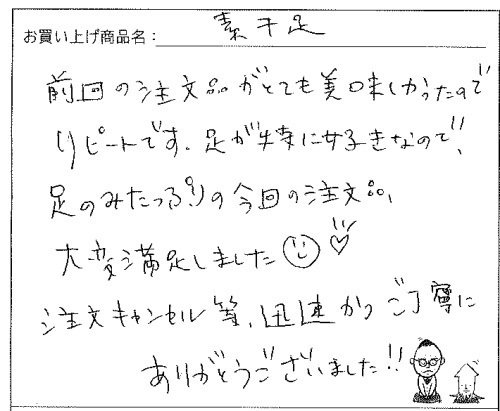 お買い上げ商品名：素干足
前回の注文品がとても美味しかったので
リピートです。足が特に好きなので!、
足のみたっぷりの今回の注文品、
大変満足しました
注文キャンセル等、迅速かつご丁寧に
ありがとうございました!!